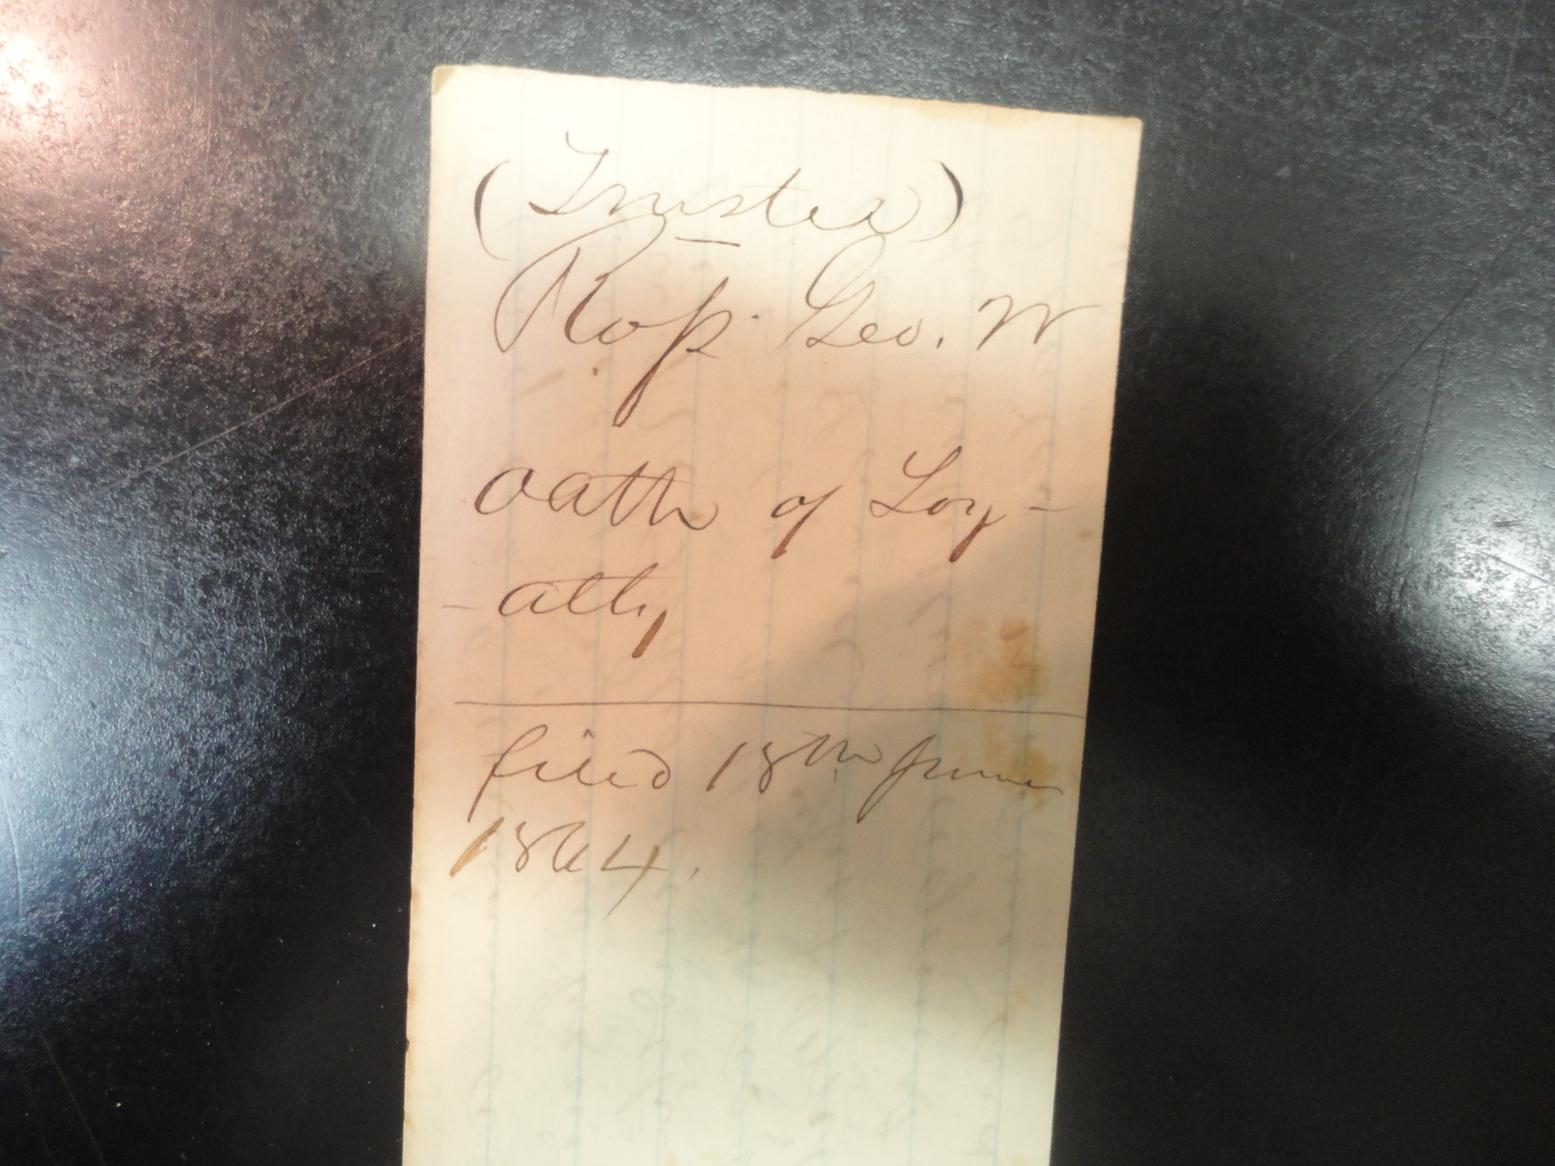 (Trustee)
Ross. Geo. W
oath of Loy-
-alty
filed 18th June
1864.